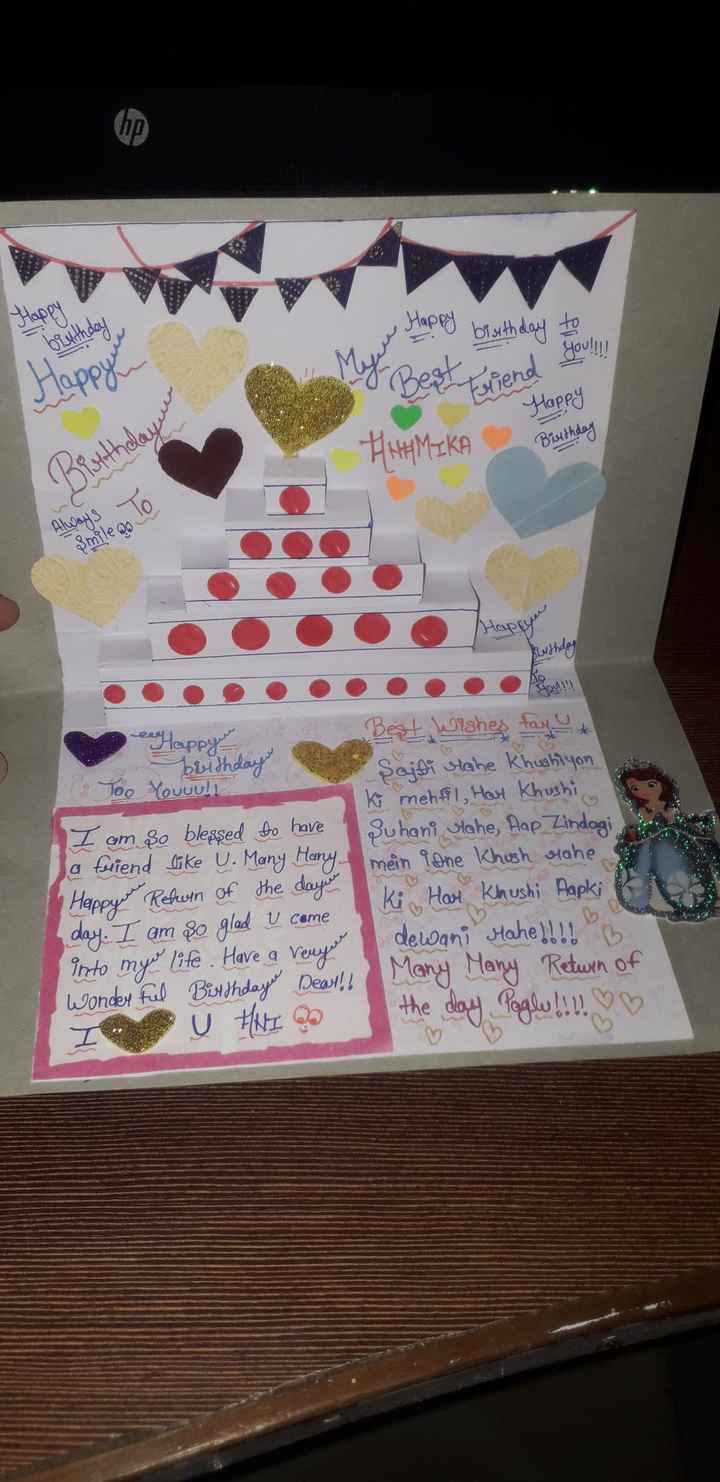 hp
Happy
birthday
Happy
Birthday
To
Always
Smile
My
Best Friend
ANAMIKA
Happy birthday to
you!!!!
Happy
Birthday
Happy
Birthday
To
You!!!
Happy
birthday
Too Youuu!!
I am So blessed to have
a friend like U. Many Many
Happy Return of the day
day. I am so glad U came
into my life. Have a Very
Wonder ful Birthday Dear!!
I U ANI
Best Wishes for U
Sajti rahe Khushiyon
ki mehfil, Har Khushi
Suhani rahe, Aap Zindagi
mein itne Khush rahe
Ki Har Khushi Aapki
dewani rahe!!!!
Many Many Return of
the day Paglu!!!!